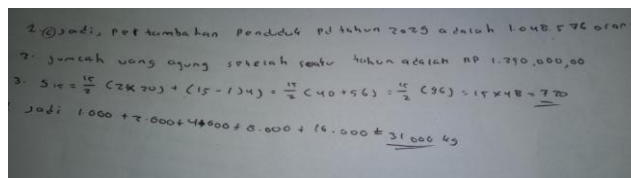 2. c) Jadi, pertumbahan penduduk pd tahun 2029 adalah 1.048.576 oran
2. Jumlah uang agung setelah satu tahun adalah RP 1.290.000,00
3. S15 = 15/2 (2x20) + (15-1)4) = 15/2 (40+56) = 15/2 (96) = 15 x 48 = 720
Jadi 1.000 + 2.000 + 4.000 + 8.000 + 16.000 = 31.000 kg